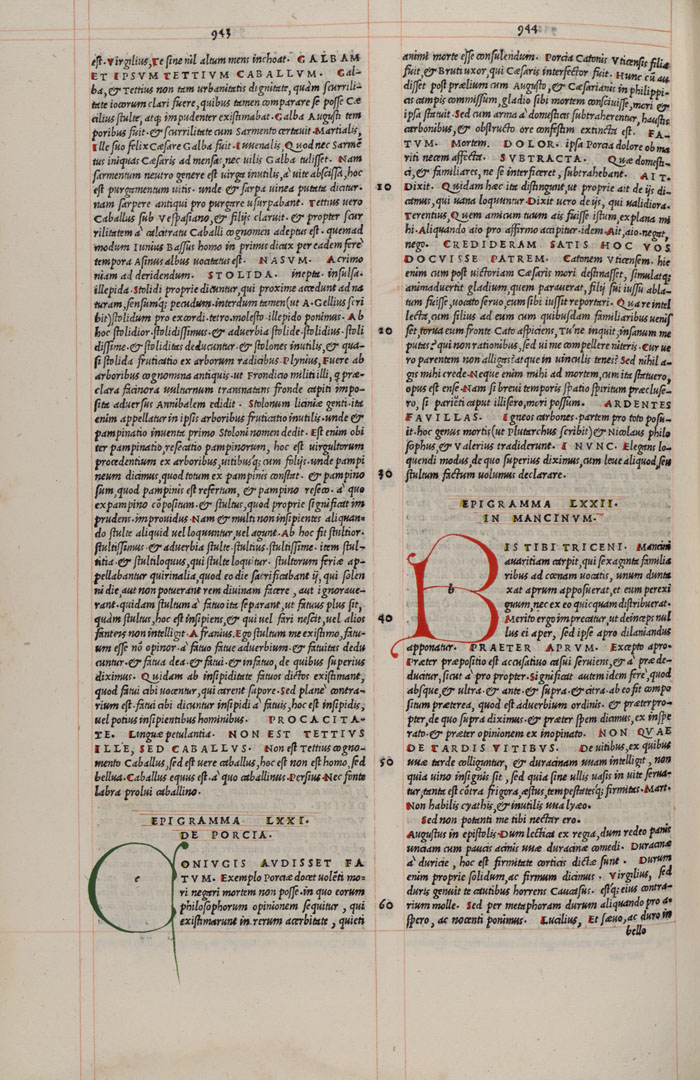 943
est. Virgilius, Te sine nil altum mens inchoat. GALBAM
ET IPSVM TETTIVM CABALLVM. Gal-
ba, & Tettius non tam urbanitatis dignitate, quàm scurrili-
tate iocorum clari fuere, quibus tamen comparare se posse Cæ
cilius stulte, atq; impudenter existimabat. Galba Augusti tem
poribus fuit. & scurrilitate cum Sarmento certauit. Martialis,
Ille suo felix Cæsare Galba fuit. Iuuenalis, Quod nec Sarmẽ
tus iniquas Cæsaris ad mensas, nec uilis Galba tulisset. Nam
sarmentum neutro genere est uirga inutilis, à uite abscissa, hoc
est purgamentum uitis. unde & sarpa uinea putata dicitur.
nam sarpere antiqui pro purgare usurpabant. Tettius uero
Caballus sub Vespasiano, & filijs claruit. & propter scur
rilitatem à calcitratu Caballi cognomen adeptus est. quemad
modum Iunius Bassus homo in primis dicax per eadem ferè
tempora Asinus albus uocitatus est. NASVM. Acrimo
niam ad deridendum. STOLIDA. inepta. insulsa.
illepida. Stolidi proprie dicuntur, qui proxime accedunt ad na
turam, sensumq; pecudum. interdum tamen (ut A. Gellius scri
bit) stolidum pro excordi. tetro. molesto. illepido ponimus. Ab
hoc stolidior. stolidissimus. & aduerbia stolide. stolidius. stoli
dissime. & stoliditas deducuntur. & stolones inutilis, & qua-
si stolida fruticatio ex arborum radicibus. Plynius, Fuere ab
arboribus cognomina antiquis. ut Frondicio militi illi, q præ-
clara facinora uulturnum transnatans fronde capiti impo-
sita aduersus Annibalem edidit. Stolonum liciniæ genti. ita
enim appellatur in ipsis arboribus fruticatio inutilis. unde &
pampinatio inuenta primo Stoloni nomen dedit. Est enim obi
ter pampinatio, resecatio pampinorum, hoc est uirgultorum
procedentium ex arboribus, uitibusq; cum folijs. unde pampi
neum dicimus, quod totum ex pampinis constat. & pampino
sum, quod pampinis est refertum, & pampino reseco. à quo
ex pampino cõpositum. & stultus, quod proprie significat im
prudens. improuidus. Nam & multi non insipientes aliquan-
do stulte aliquid uel loquuntur, uel agunt. Ab hoc fit stultior.
stultissimus. & aduerbia stulte. stultius. stultissime. item stul-
titia. & stultiloquus, qui stulte loquitur. stultorum feriæ ap-
pellabantur quirinalia, quod eo die sacrificabant ij, qui solen
ni die, aut non potuerant rem diuinam facere, aut ignoraue-
rant. quidam stultum à fatuo ita separant, ut fatuus plus sit,
quàm stultus, hoc est insipiens, & qui uel fari nescit, uel alios
fanteis non intelligit. Afranius, Ego stultum me existimo, fatu-
um esse nõ opinor. à fatuo fatue aduerbium. & fatuitas dedu
cuntur. & fatua dea. & fatui. & infatuo, de quibus superius
diximus. Quidam ab insipiditate fatuos dictos existimant,
quod fatui cibi uocentur, qui carent sapore. Sed plane contra-
rium est. fatui cibi dicuntur insipidi à fatuis, hoc est insipidis,
uel potius insipientibus hominibus. PROCACITA-
TE. Linguæ petulantia. NON EST TETTIVS
ILLE, SED CABALLVS. Non est Tettius cogno-
mento Caballus, sed est uere caballus, hoc est non est homo, sed
bellua. Caballus equus est. à quo caballinus. Persius, Nec fonte
labra prolui caballino.
EPIGRAMMA LXXI.
DE PORCIA.
CONIVGIS AVDISSET FA-
TVM. Exemplo Porciæ docet uolẽti mo-
ri negari mortem non posse. in quo eorum
philosophorum opinionem sequitur, qui
existimarunt in rerum acerbitate, quieti
944
animi morte esse consulendum. Porcia Catonis Vticensis filia
fuit, & Bruti uxor, qui Cæsaris interfector fuit. Hunc cũ au
disset post prælium cum Augusto, & Cæsarianis in philippi-
cis campis commissum, gladio sibi mortem consciuisse, mori &
ipsa statuit. Sed cum arma à domesticis subtraherentur, haustis
carbonibus, & obstructo ore confestim extincta est. FA-
TVM. Mortem. DOLOR. ipsa Porcia dolore ob ma
riti necem affecta. SVBTRACTA. Quæ domesti-
ci, & familiares, ne se interficeret, subtrahebant. AIT.
10 Dixit. Quidam hæc ita distingunt, ut proprie ait de ijs di-
camus, qui uana loquuntur. Dixit uero de ijs, qui ualidiora.
Terentius, Quem amicum tuum ais fuisse istum, explana mi
hi. Aliquando aio pro affirmo accipitur. idem, Ait, aio. negat,
nego. CREDIDERAM SATIS HOC VOS
DOCVISSE PATREM. Catonem Vticensem. hic
enim cum post uictoriam Cæsaris mori destinasset, simulatq;
animaduertit gladium, quem parauerat, filij sui iussu abla-
tum fuisse, uocato seruo, eum sibi iussit reportari. Quare intel
lecta, cum filius ad eum cum quibusdam familiaribus uenis
20 set, torua eum fronte Cato aspiciens, Tu'ne inquit, insanum me
putas? qui non rationibus, sed ui me compellere niteris. Cur ue
ro parentem non alligas? atque in uinculis tenes? Sed nihil a-
gis mihi crede. Neque enim mihi ad mortem, cum ita statuero,
opus est ense. Nam si breui temporis spatio spiritum præcluse-
ro, si parieti caput illisero, mori possum. ARDENTES
FAVILLAS. Igneos carbones. partem pro toto posu-
it. hoc genus mortis (ut Plutarchus scribit) & Nicolaus philo
sophus, & Valerius tradiderunt. I NVNC. Elegans lo-
quendi modus, de quo superius diximus, cum leue aliquod seu
30 stultum factum uolumus declarare.
EPIGRAMMA LXXII.
IN MANCINVM.
BIS TIBI TRICENI. Mancini
auaritiam carpit, qui sexaginta familia
ribus ad cœnam uocatis, unum dunta
xat aprum apposuerat, et eum perexi
guum, nec ex eo quicquam distribuerat.
40 Merito ergo imprecatur, ut deinceps nul
lus ei aper, sed ipse apro dilaniandus
apponatur. PRAETER APRVM. Excepto apro.
Præter præpositio est accusatiuo casui seruiens, & à præ de-
ducitur, sicut à pro propter. Significat autem idem ferè, quod
absque, & ultra. & ante. & supra. & citra. ab eo fit compo
situm præterea, quod est aduerbium ordinis. & præterpro-
pter, de quo supra diximus. & præter spem dicimus, ex inspe
rato. & præter opinionem ex inopinato. NON QVAE
DE TARDIS VITIBVS. De uitibus, ex quibus
50 uuæ tarde colliguntur, & duracinam uuam intelligit, non
quia uino insignis sit, sed quia sine ullis uasis in uite serua-
tur, tanta est cõtra frigora, æstus, tempestatesq; firmitas. Mart.
Non habilis cyathis, & inutilis uua lyæo.
Sed non potanti me tibi nectar ero.
Augustus in epistolis. Dum lectica ex regia, dum redeo panis
unciam cum paucis acinis uuæ duracinæ comedi. Duracinæ
à duricie, hoc est firmitate corticis dictæ sunt. Durum
enim proprie solidum, ac firmum dicimus. Virgilius, sed
duris genuit te cautibus horrens Caucasus. estq; eius contra-
60 rium molle. Sed per metaphoram durum aliquando pro a-
spero, ac nocenti ponimus. Lucilius, Et sæuo, ac duro in
bello